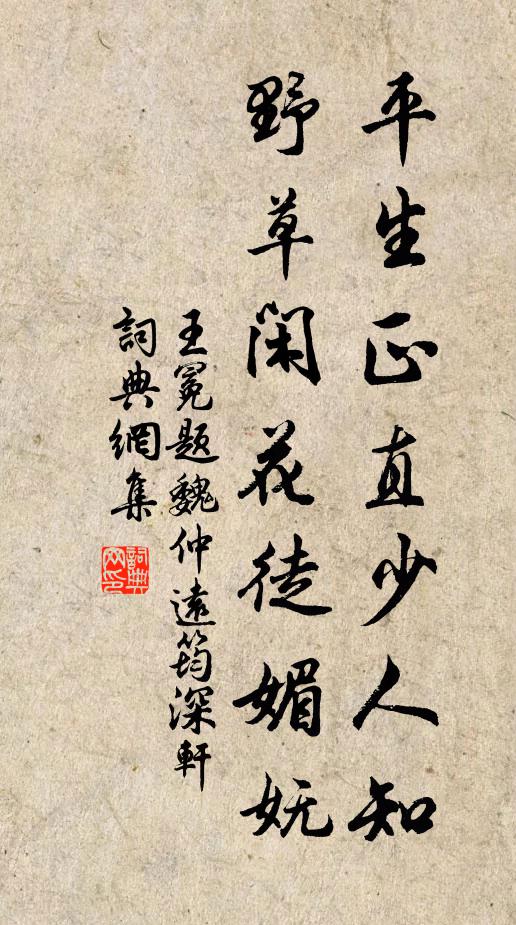 平生正直少人知
野草閑花徒媚妩
王冕題魏仲遠筠深軒
詞典網集
詞典网印